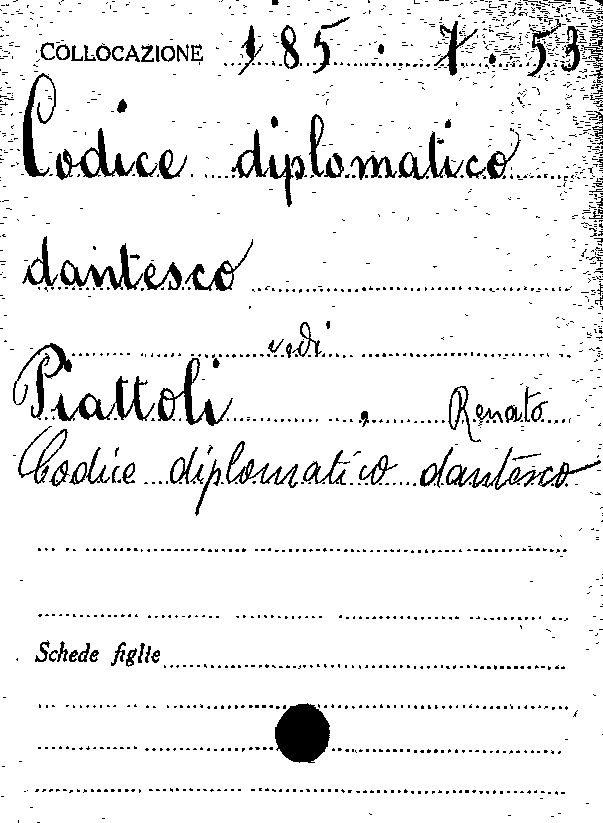 COLLOCAZIONE 185 . 7 . 53
Codice diplomatico
dantesco
vedi
Piattoli , Renato
Codice diplomatico dantesco
Schede figlie